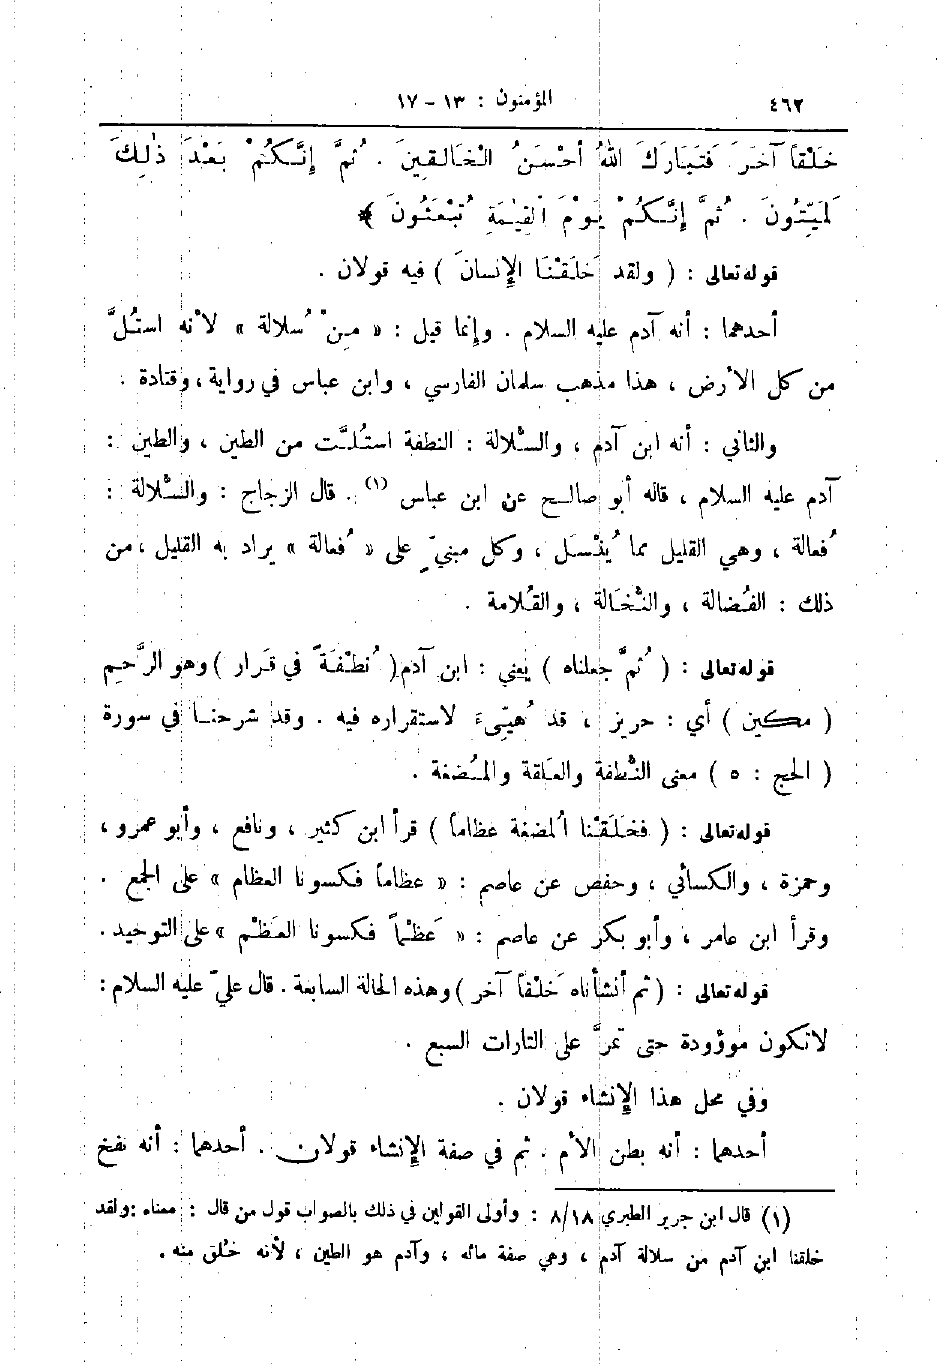 ٤٦٢ المؤمنون : ١٣ - ١٧
خَلْقاً آخَرَ فَتَبَارَكَ اللهُ أَحْسَنُ الْخَالِقِينَ . ثُمَّ إِنَّكُمْ بَعْدَ ذٰلِكَ
لَمَيِّتُونَ . ثُمَّ إِنَّكُمْ يَوْمَ الْقِيٰمَةِ تُبْعَثُونَ ﴾
قوله تعالى : ( ولقد خَلَقْنَا الإِنسانَ ) فيه قولان .
أحدهما : أنه آدم عليه السلام . وإِنما قيل : « مِنْ سُلالة » لأنه استُلَّ
من كل الأرض ، هذا مذهب سلمان الفارسي ، وابن عباس في رواية ، وقتادة .
والثاني : أنه ابن آدم ، والسُّلالة : النطفة استُلَّت من الطين ، والطين :
آدم عليه السلام ، قاله أبو صالح عن ابن عباس (١) . قال الزجاج : والسُّلالة :
فُعالة ، وهي القليل مما يُنْسَل ، وكل مبنيّ على « فُعالة » يراد به القليل ، من
ذلك : الفُضالة ، والنُّخَالة ، والقُلامة .
قوله تعالى : ( ثُمَّ جعلناه ) يعني : ابن آدم ( نُطْفَةً في قَرار ) وهو الرَّحِم
( مكين ) أي : حريز ، قد هُيِّىءَ لاستقراره فيه . وقد شرحنا في سورة
( الحج : ٥ ) معنى النُّطفة والعَلَقة والمُضغة .
قوله تعالى : ( فخَلَقْنا المُضغة عظاماً ) قرأ ابن كثير ، ونافع ، وأبو عمرو ،
وحمزة ، والكسائي ، وحفص عن عاصم : « عظاماً فكسونا العظام » على الجمع .
وقرأ ابن عامر ، وأبو بكر عن عاصم : « عَظْماً فكسونا العَظْم » على التوحيد .
قوله تعالى : ( ثم أنشأناه خَلْقاً آخر ) وهذه الحالة السابعة . قال عليّ عليه السلام :
لا تكون موؤودة حتى تمرَّ على التارات السبع .
وفي محل هذا الإِنشاء قولان .
أحدهما : أنه بطن الأم . ثم في صفة الإِنشاء قولان . أحدهما : أنه نفخ
(١) قال ابن جرير الطبري ٨/١٨ : وأولى القولين في ذلك بالصواب قول من قال : معناه : ولقد
خلقنا ابن آدم من سلالة آدم ، وهي صفة مائه ، وآدم هو الطين ، لأنه خُلق منه .